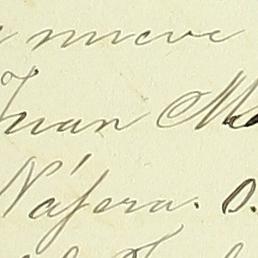 nueve
Juan Ma
Nájera. O.